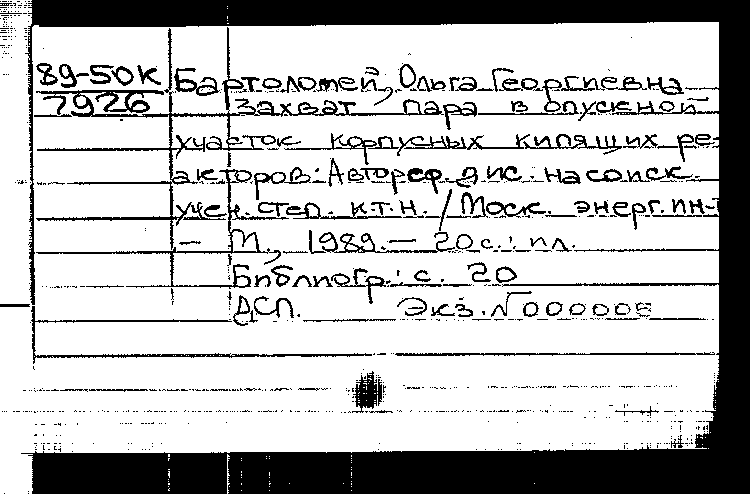 89-50К Бартоломей, Ольга Георгиевна
7926 Захват пара в опускной
участок корпусных кипящих ре-
акторов: Автореф. дис. на соиск.
учен. степ. к.т.н. / Моск. энерг. ин-т
– М., 1989. – 20 с.: ил.
Библиогр.: с. 20
ДСП. Экз. № 000006